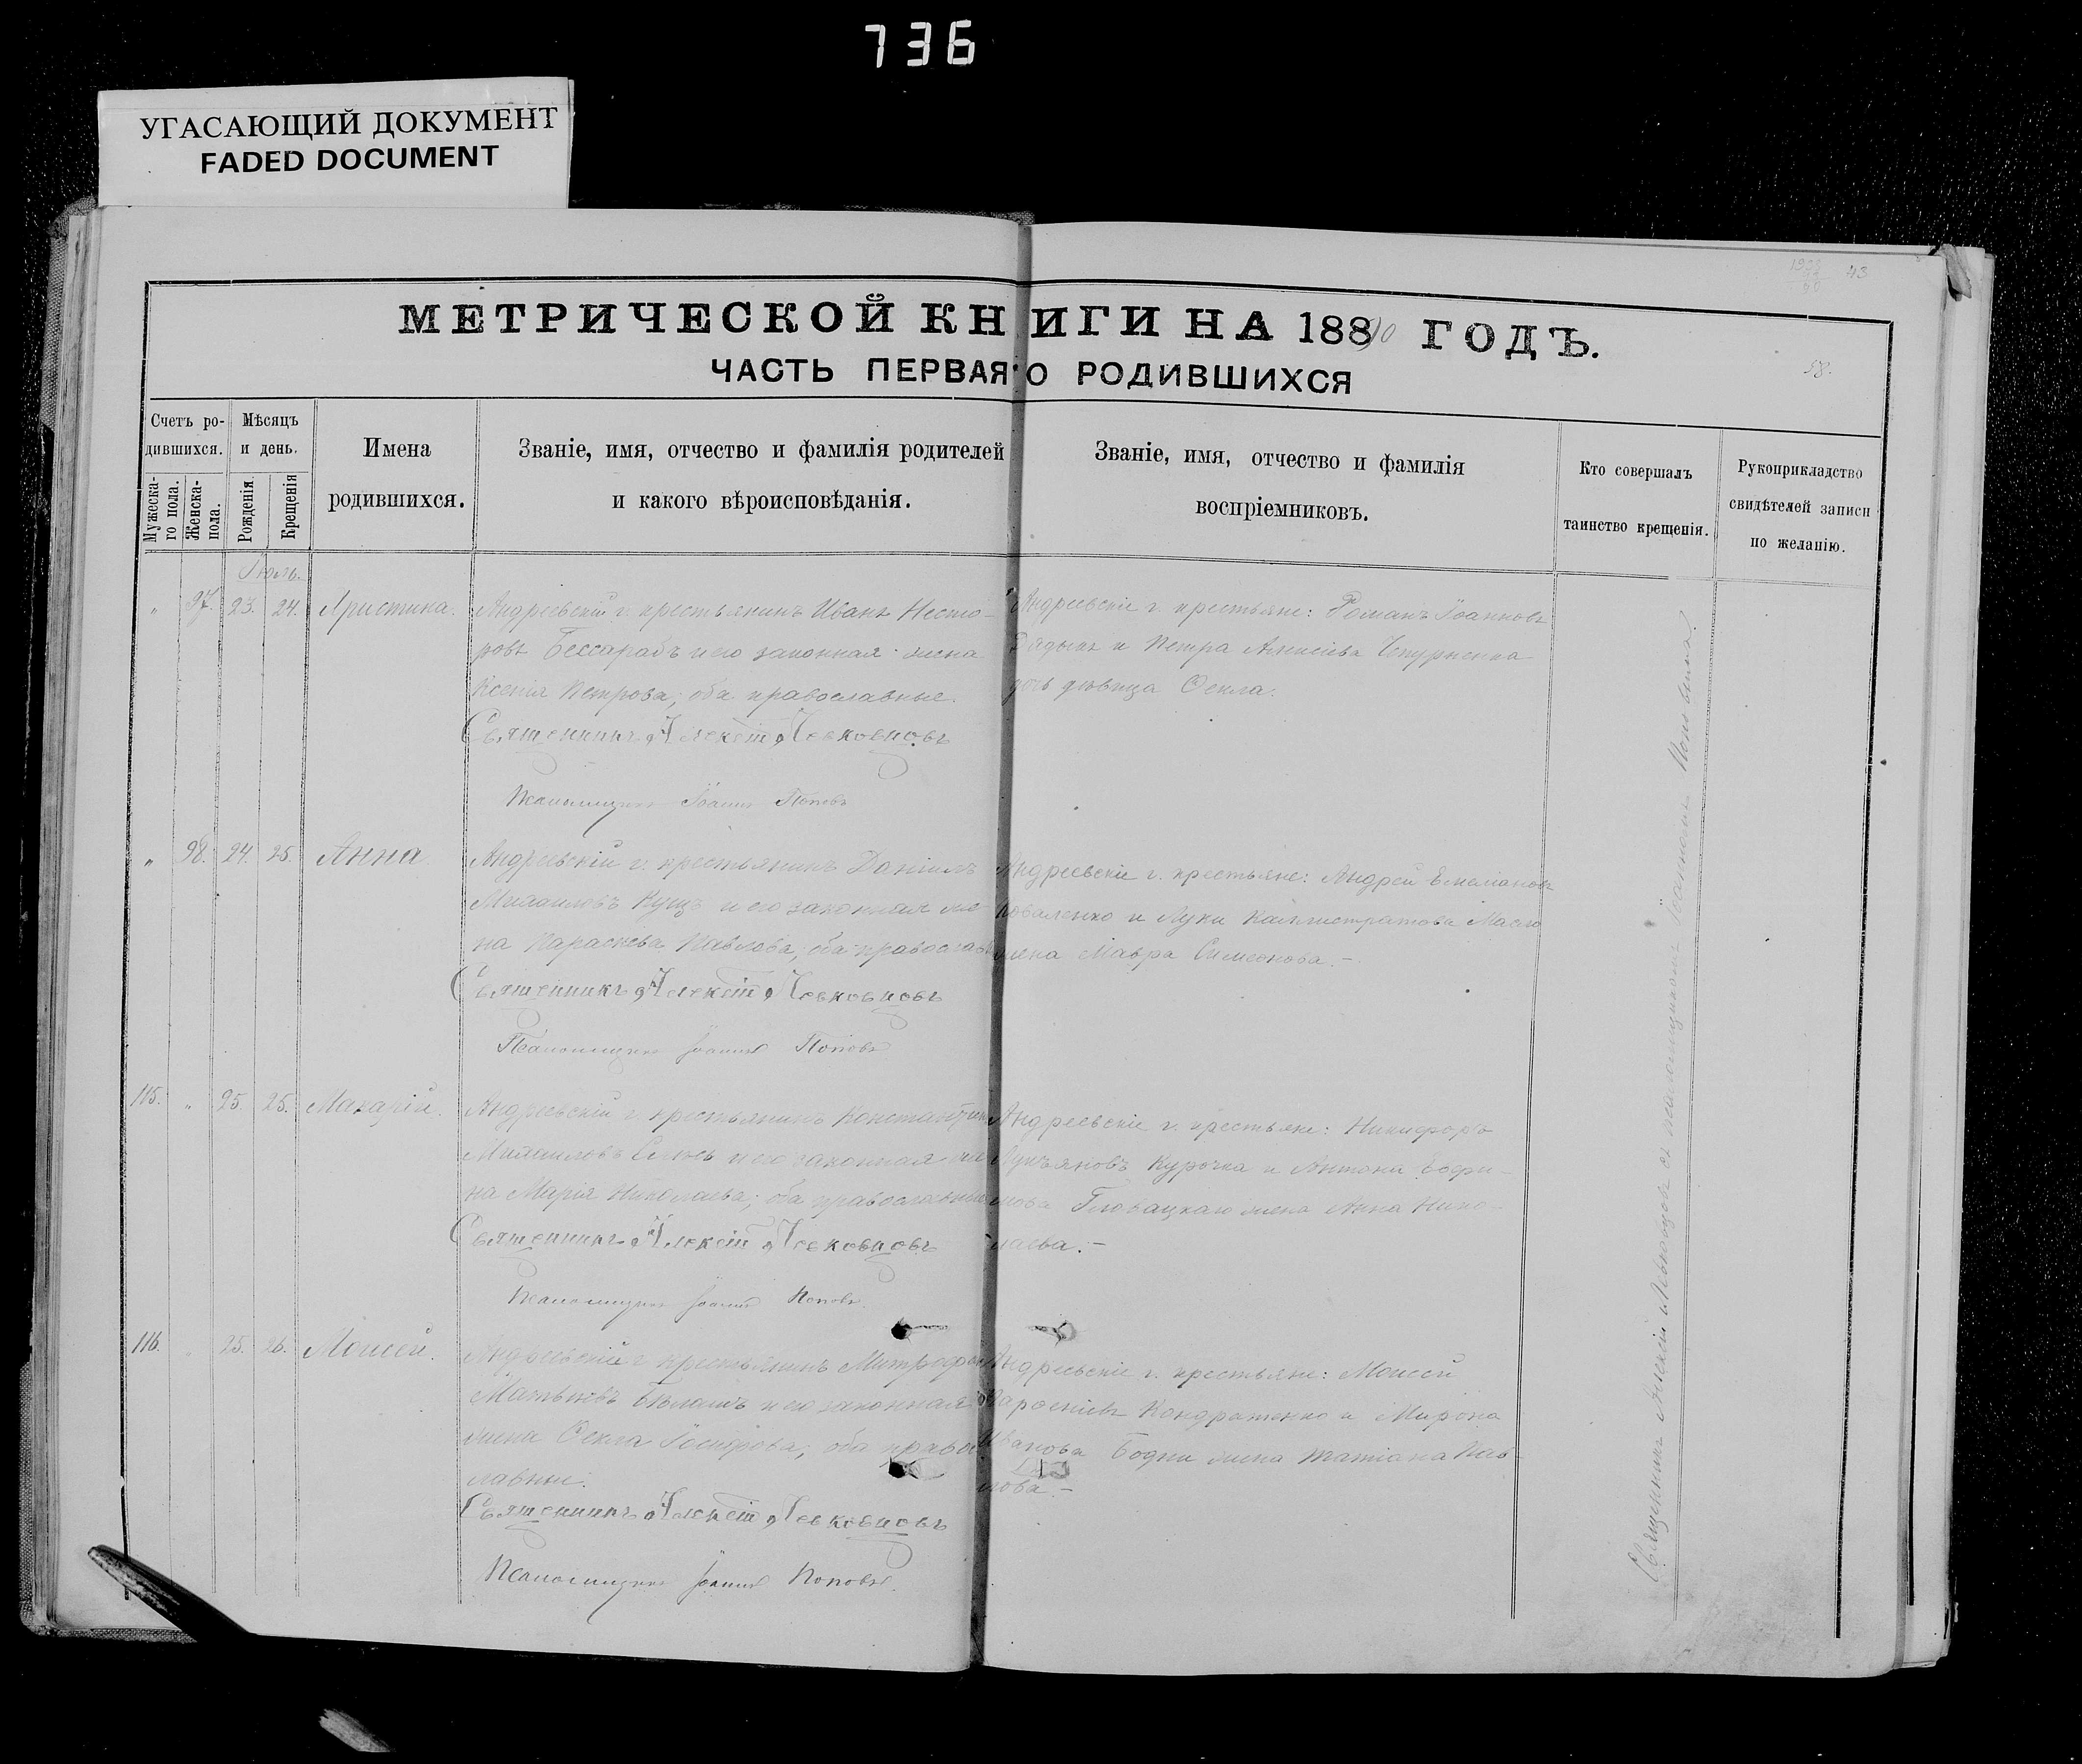 736
УГАСАЮЩИЙ ДОКУМЕНТ
FADED DOCUMENT
43
МЕТРИЧЕСКОЙ КНИГИ НА 1890 ГОДЪ.
ЧАСТЬ ПЕРВАЯ О РОДИВШИХСЯ
58.
Счетъ ро-
дившихся.
Мужеска-
го пола.
Женска-
пола.
Мѣсяцъ
и день.
Рожденія.
Крещенія
Имена
родившихся.
Званіе, имя, отчество и фамилія родителей
и какого вѣроисповѣданія.
Званіе, имя, отчество и фамилія
воспріемниковъ.
Кто совершалъ
таинство крещенія.
Рукоприкладство
свидѣтелей записи
по желанію.
Іюль.
" 97. 23. 24. Христина.
Андреевскій г. крестьянинъ Иванъ Несто-
ровъ Бессарабъ и его законная жена
Ксенія Петрова; оба православные.
Священникъ Алексій Левковцовъ
Псаломщикъ Іоаннъ Поповъ
Андреевскіе г. крестьяне: Романъ Іоанновъ
и Петра Алексіева
дочь дѣвица Ѳекла.
" 98. 24. 25. Анна
Андреевскій г. крестьянинъ Даніилъ
Михаиловъ Кущъ и его законная же-
на Параскева Павлова; оба православ
Священникъ Алексій Левковцовъ
Псаломщикъ Іоаннъ Поповъ
Андреевскіе г. крестьяне: Андрей Емеліановъ
Коваленко и Луки Каллистратова Масло
жена Мавра Симеонова.-
115. " 25. 25. Макарій.
Андреевскій г. крестьянинъ Константинъ
Михаиловъ и его законная же
на Марія Николаева; оба православные
Священникъ Алексій Левковцовъ
Псаломщикъ Іоаннъ Поповъ.
Андреевскіе г. крестьяне: Никифоръ
Лукьяновъ Курочка и Антона Евфи-
мова Гловацкаго жена Анна Нико-
лаева.-
116. " 25. 26. Моисей.
Андреевскій г. крестьянинъ Митрофанъ
Матвѣевъ Бѣлашъ и его законная
жена Ѳекла; оба правос
лавные.
Священникъ Алексій Левковцовъ
Псаломщикъ Іоаннъ Поповъ.
Андреевскіе г. крестьяне: Моисей
Кондратенко и Мирона
Иванова Бодни жена Татіана Пав-
лова.-
Священникъ Алексій Левковцовъ съ псаломщикомъ Іоанномъ Поповымъ.